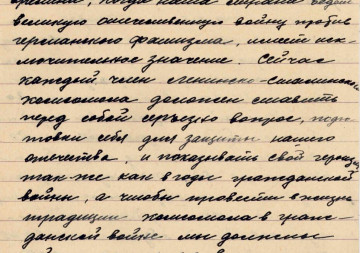 времени, когда наша страна ведет
великую отечественную войну против
германского фашизма, имеет иск-
лючительное значение. Сейчас
каждый член Ленинско-Сталинского
комсомола должен ставить
перед собой серьезно вопрос, подго-
товки себя для защиты нашего
отечества, и показывать свой героизм
так же как в годы гражданской
войны, а чтобы провести в жизнь
традиции комсомола в граж-
данской войне мы должны